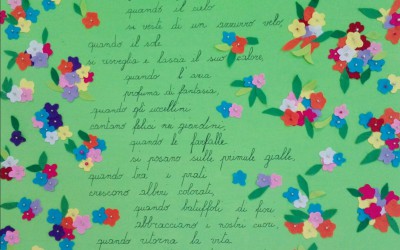 quando il cielo
si veste di un azzurro velo,
quando il sole
si risveglia e lascia il suo calore,
quando l'aria
profuma di fantasia,
quando gli uccellini
cantano felici nei giardini,
quando le farfalle
si posano sulle primule gialle,
quando tra i prati
crescono alberi colorati,
quando batuffoli di fiori
abbracciano i nostri cuori,
quando ritorna la vita